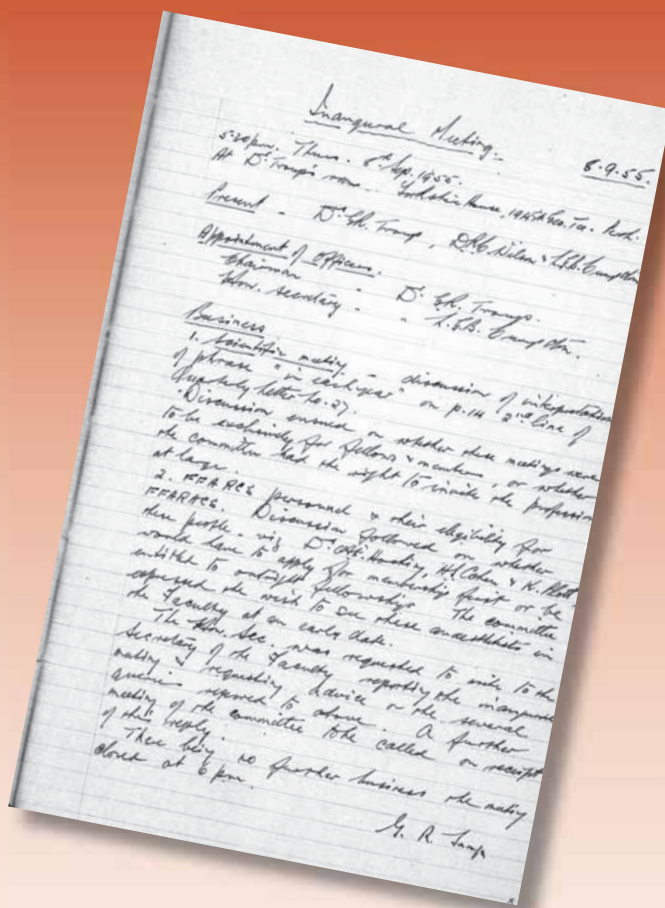 Inaugural Meeting.
8.9.55.
5.20 pm. Thurs. 8th Sep. 1955.
At Dr. Troup's rooms. Yorkshire House, 194 St Geo. Tce. Perth.
Present - Dr. G.R. Troup, D.R.C. Wilson & L.G.B. Cumpston
Appointment of officers.
Chairman - Dr. G.R. Troup.
Hon. secretary - " L.G.B. Cumpston.
Business
1. Scientific meeting - discussion of interpretation
of phrase "in each year" on p. 14 2nd line of
Quarterly letter No. 27.
Discussion ensued on whether these meetings were
to be exclusively for fellows & members, or whether
the committee had the right to invite the profession
at large.
2. FFARCS personnel & their eligibility for
FFARACS. Discussion followed on whether
these people - viz Dr. Hunting, H. Cohen & K. Platt
would have to apply for membership first or be
entitled to outright fellowship. The committee
expressed the wish to see these anaesthetists in
the Faculty at an early date.
The Hon. Sec. was requested to write to the
Secretary of the Faculty reporting the inaugural
meeting & requesting advice on the several
queries referred to above. A further
meeting of the committee to be called on receipt
of this reply.
There being no further business the meeting
closed at 6 pm.
G. R. Troup